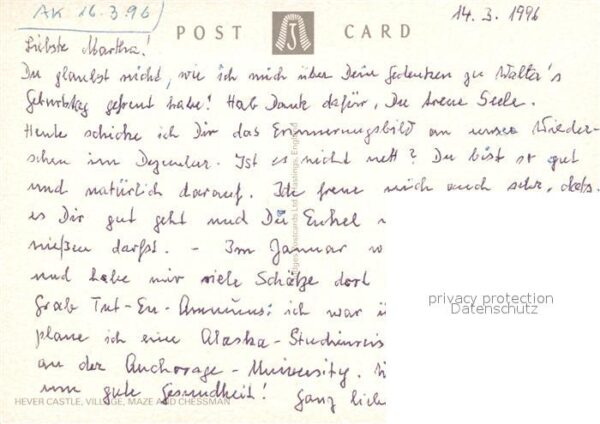 AK 16.3.96
14.3.1996
POST CARD
Liebste Martha!
Du glaubst nicht, wie ich mich über Dein Gedenken zu Walta's
Geburtstag gefreut habe! Hab Dank dafür, Du treue Seele.
Heute schicke ich Dir das Erinnerungsbild an unser Wieder-
sehen im Dezember. Ist es nicht nett? Du bist so gut
und natürlich darauf. Ich freue mich auch sehr, dass
es Dir gut geht und Du Enkel
nießen darfst. - Im Januar w
und habe mir viele Schätze dort
Grab Tut-En-Ammuns: ich war ü
plane ich eine Alaska-Studienreis
an der Anchorage-University.
nun gute Gesundheit! Ganz lieb
HEVER CASTLE, VILLAGE, MAZE AND CHESSMAN
Postcards Ltd Hastings, England
privacy protection
Datenschutz